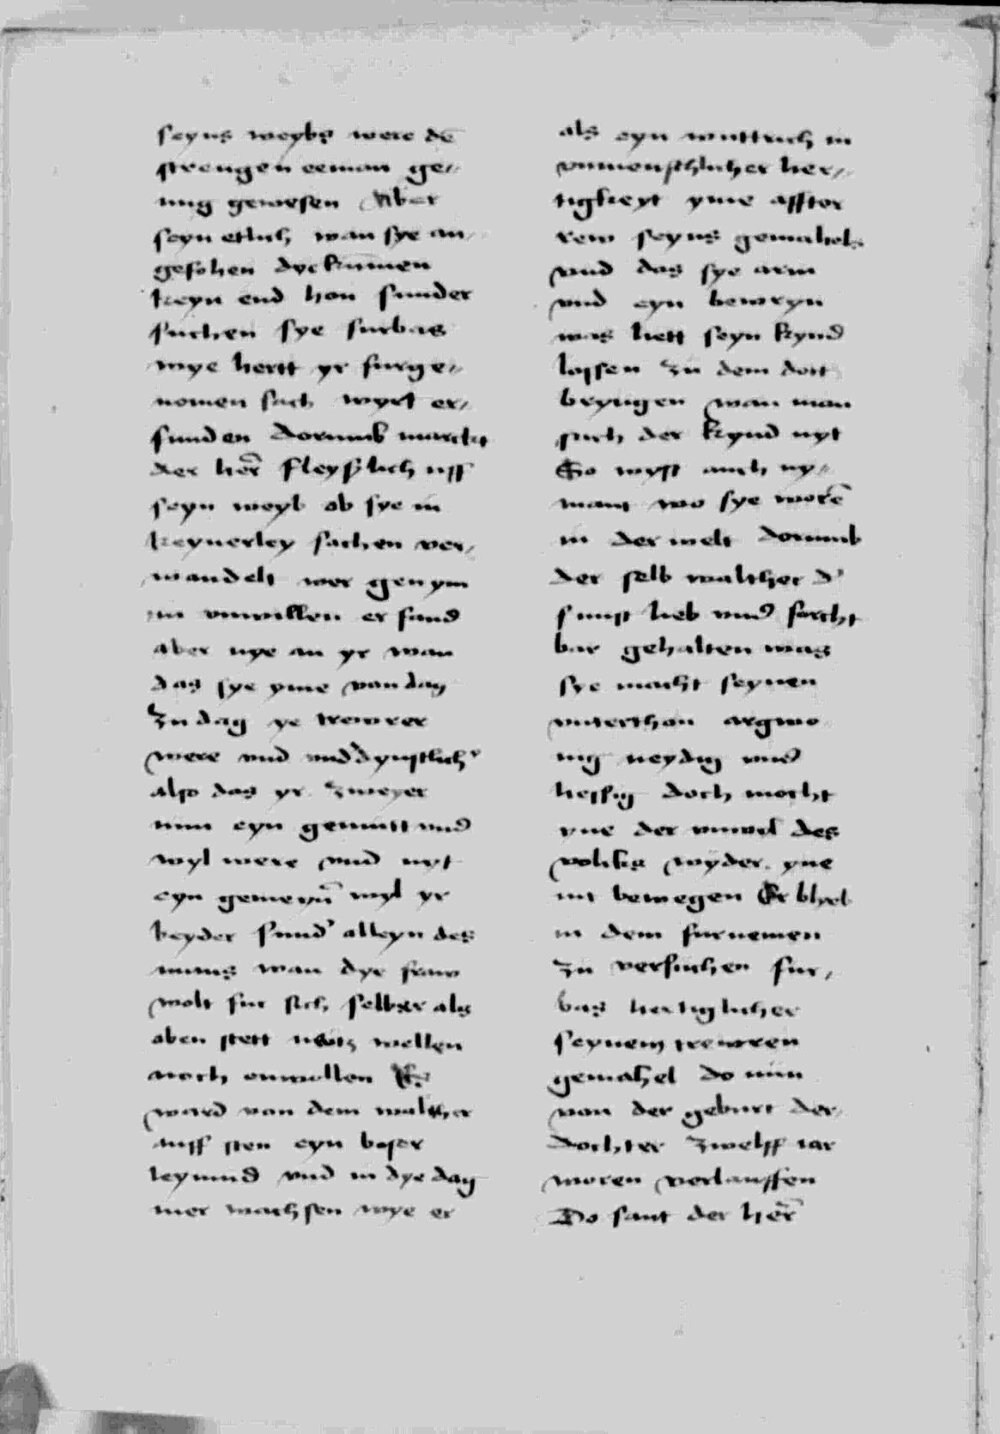 seyns weybs were dē
strengen eeman ge⸗
nug gewesen Aber
seyn etlich wan sye an⸗
gefohen dye kūmen
keyn end hon sunder
suchen sye furbas
wye hertt yr furge⸗
nomen sach wyrt er⸗
funden dorumb marckt
der her̄ fleyßlich uff
seyn weyb ob sye in
keynerley sachen ver⸗
wandelt wer gen ym
in unwillen er fand
aber nye an yr wan
das sye yme von dag
zu dag ye trewrer
were und und dynstlich'
also das yr zweyer
nun eyn gemutt und
wyl were und nyt
eyn gemeyn̄ wyl yr
beyder sund' alleyn des
mans wan dye fraw
wolt fur sich selber als
aben stett nichtz wellen
noch onwollen Es
ward von dem walther
auff sten eyn boser
leymud und in dye dag
mer wachsen wye er
als eyn wuttrich in
unmenschlicher her⸗
tigkeyt yme affter
rew seyns gemahels
und das sye arm
und eyn bewryn
was hett seyn kynd
lassen zu dem dott
bryngen wan man
sach der kynd nyt
So wyst auch ny⸗
mant wo sye worē
in der welt dorumb
der selb walther d'
sunst lieb und forcht
bar gehalten was
sye macht seynen
unterthan argwo
nig neydig und
hessig doch mocht
yne der unwil des
volks wyder yne
nit bewegen Er bleyb
in dem furnemen
zu versuchen fur⸗
bas hertiglicher
seynem trewren
gemahel do nun
von der geburt der
dochter zwelff iar
woren verlauffen
Do sant der her̄